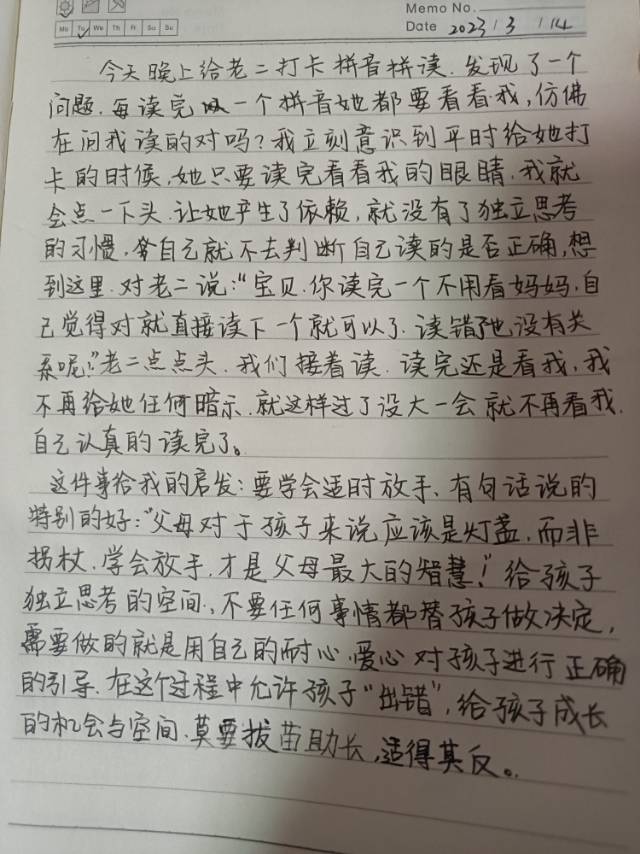 Memo No.
Mo Tu We Th Fr Su Su
Date 2023 / 3 / 14
今天晚上给老二打卡拼音拼读.发现了一个
问题.每读完一个拼音她都要看看我,仿佛
在问我读的对吗?我立刻意识到平时给她打
卡的时候,她只要读完看看我的眼睛,我就
会点一下头.让她产生了依赖,就没有了独立思考
的习惯,自己就不去判断自己读的是否正确,想
到这里.对老二说:“宝贝.你读完一个不用看妈妈,自
己觉得对就直接读下一个就可以了.读错了也没有关
系呢”老二点点头.我们接着读.读完还是看我,我
不再给她任何暗示.就这样过了没大一会就不再看我.
自己认真的读完了。
这件事给我的启发:要学会适时放手、有句话说的
特别的好:“父母对于孩子来说应该是灯盏,而非
拐杖.学会放手,才是父母最大的智慧!”给孩子
独立思考的空间,不要任何事情都替孩子做决定,
需要做的就是用自己的耐心.爱心对孩子进行正确
的引导.在这个过程中允许孩子“出错”,给孩子成长
的机会与空间.莫要拔苗助长,适得其反。